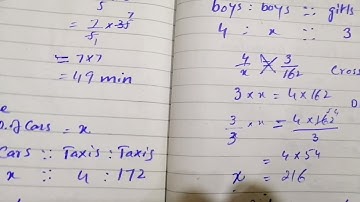 5
= 7/5 × 35 7
1
= 7×7
= 49 min
o. of cars = x
Cars :: Taxis : Taxis
x :: 4 : 172
boys : boys :: girls
4 : x :: 3
4/x 3/162 Cross
3 × x = 4×162
3/3 × x = 4×162 54/3
= 4×54
x = 216